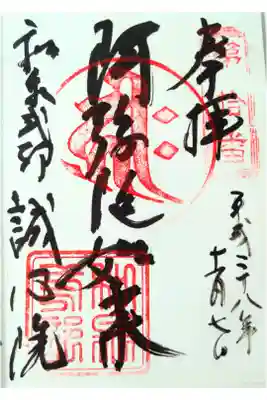 奉拝
平成二十八年
十一月七日
阿弥陀如来
和泉式部 誠心院